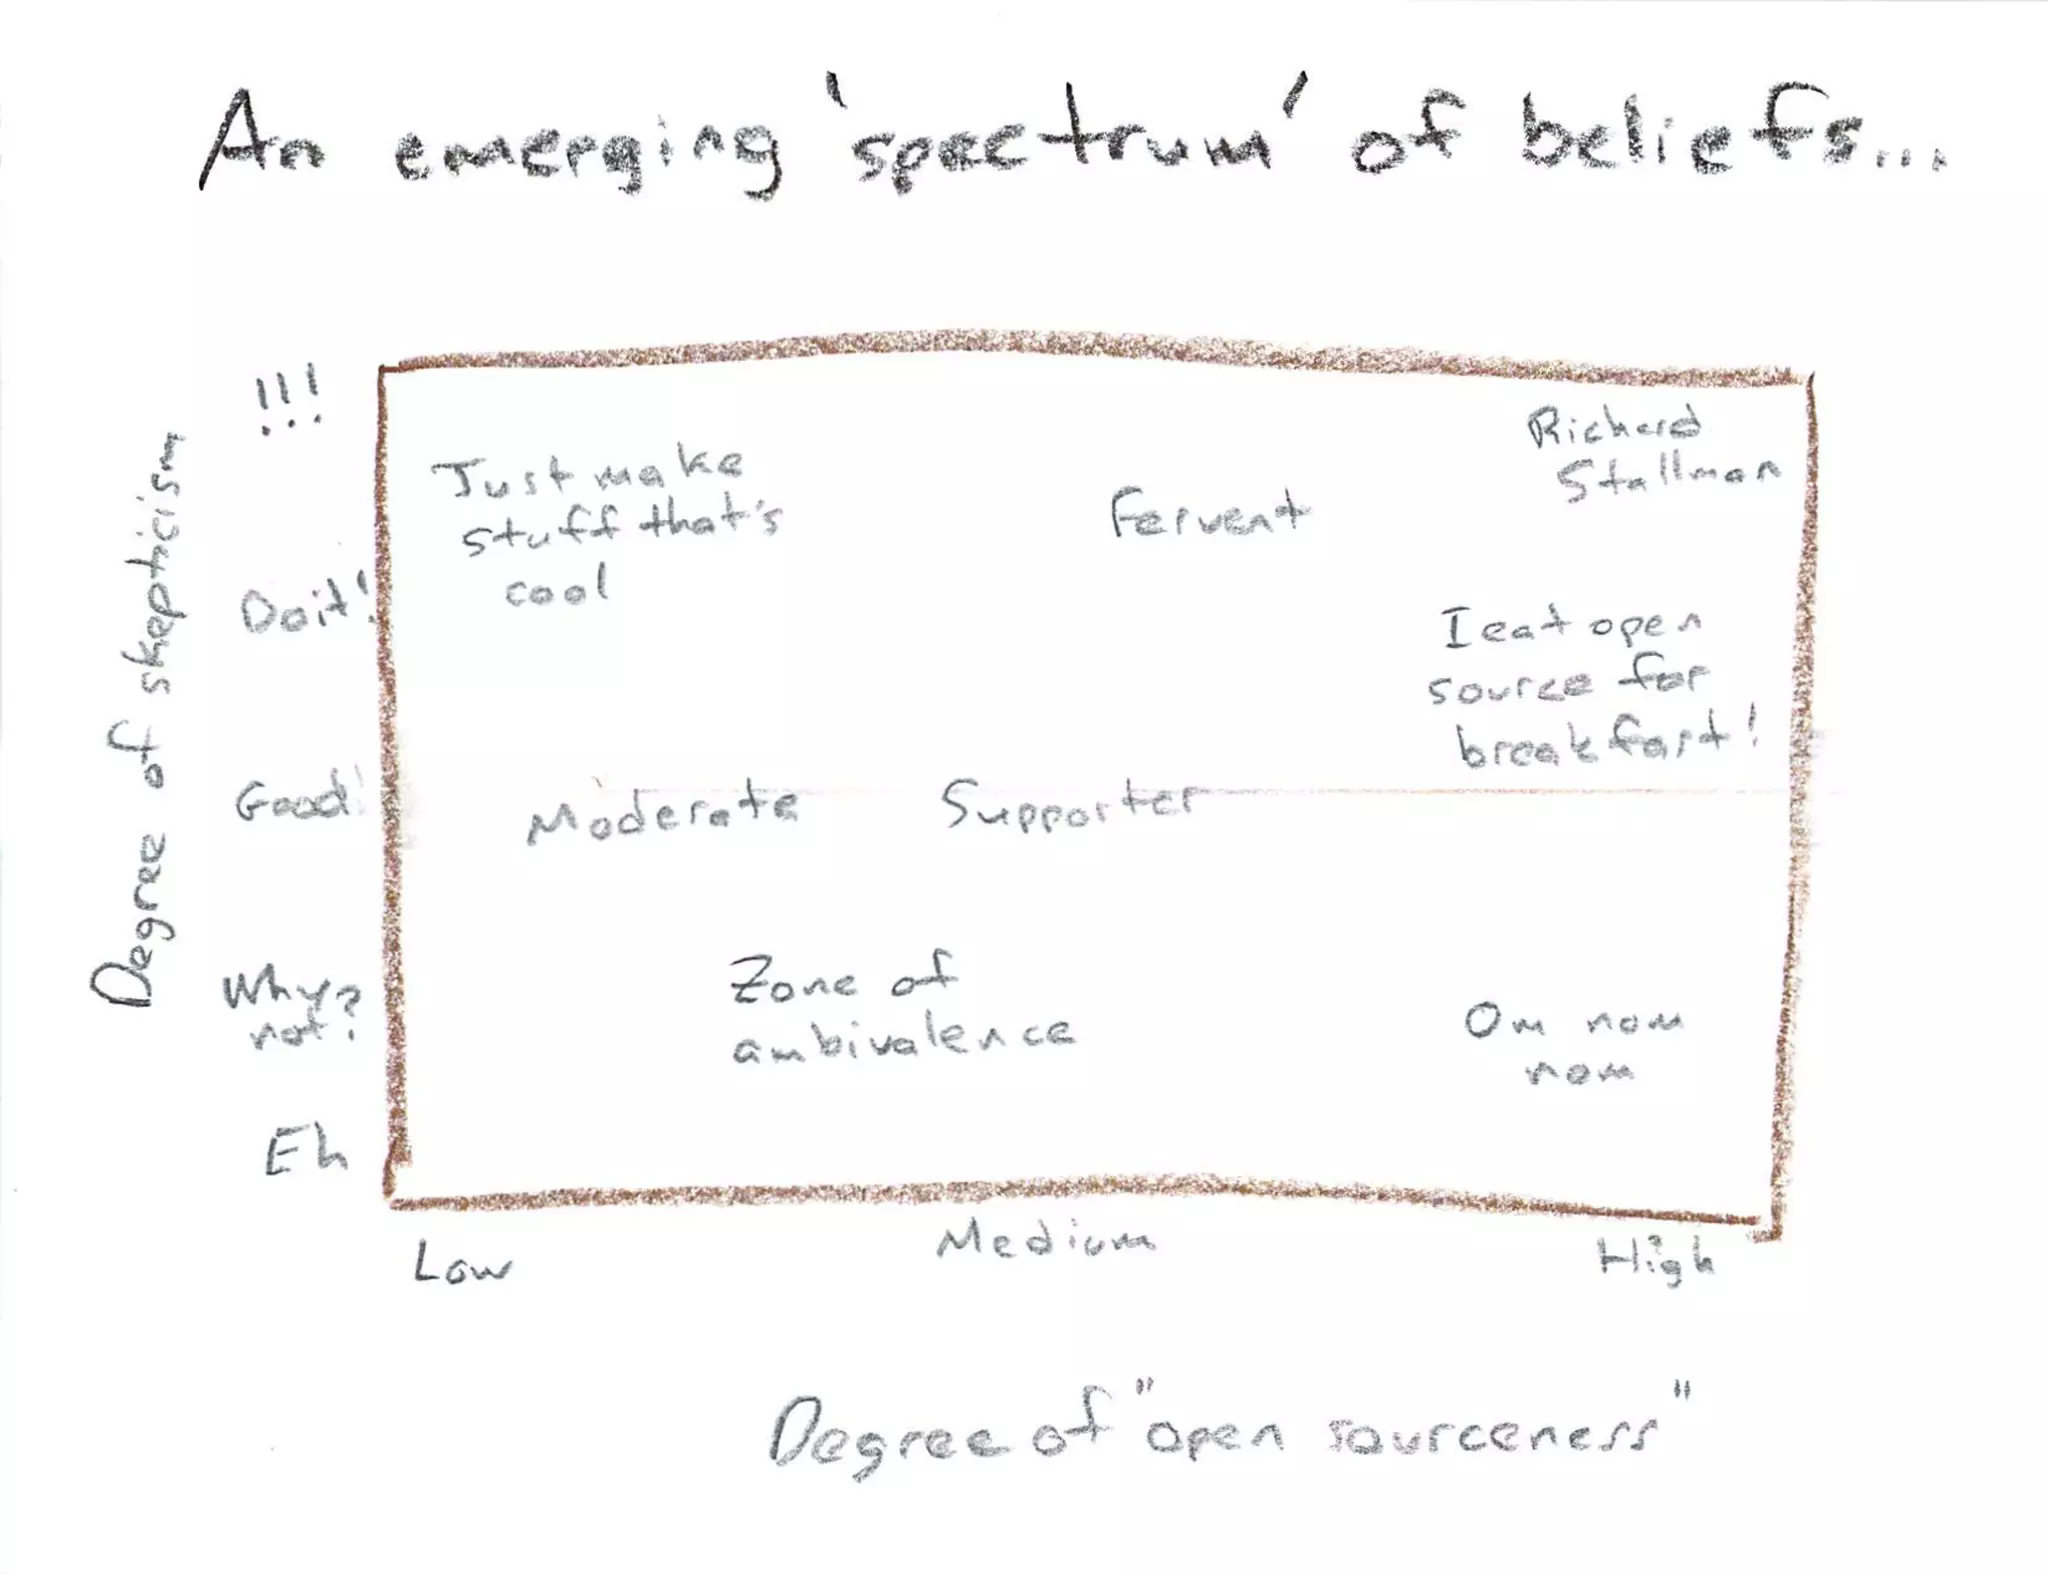 An emerging 'spectrum' of beliefs...
!!!
Richard
Stallman
Just make
stuff that's
cool
Fervent
Do it!
I eat open
source for
breakfast!
Degree of skepticism
Good!
Moderate
Supporter
Why?
not?
Zone of
ambivalence
Om nom
nom
Eh
Low
Medium
High
Degree of "open sourceness"